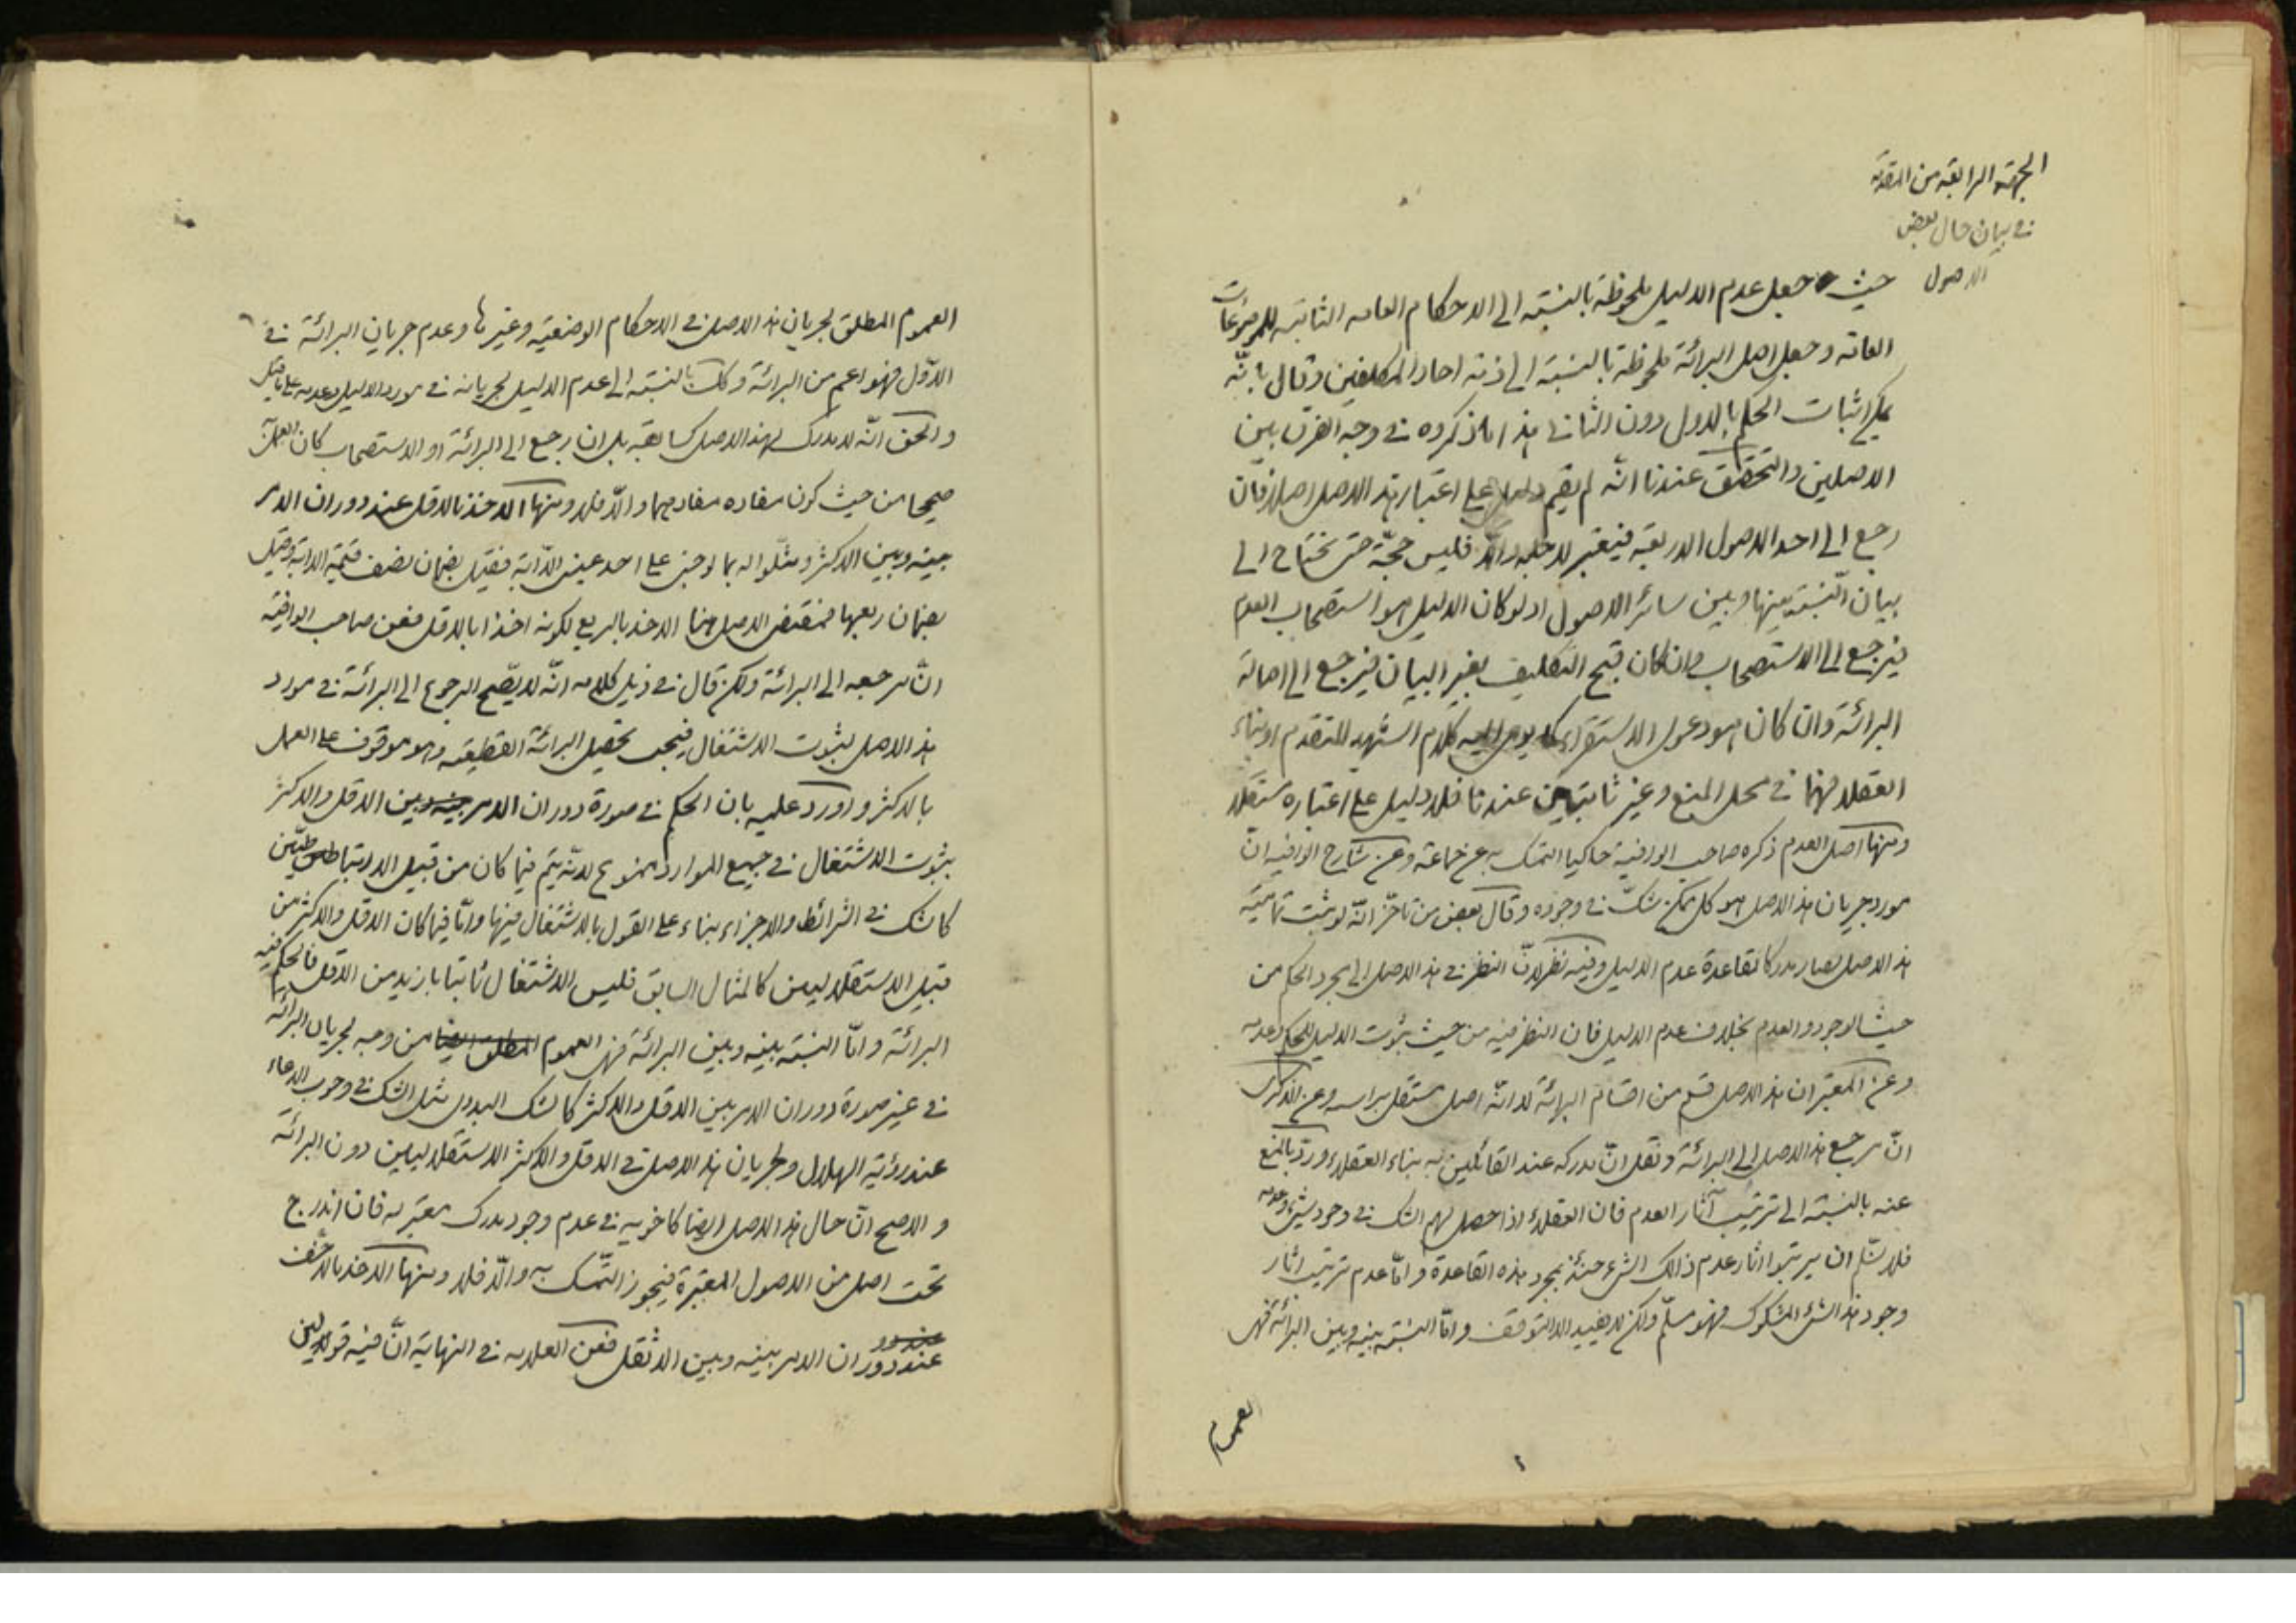 الجهة الرابعة من المقدمة
في بيان حال بعض
الاصول
حيث جعل عدم الدليل ملحوظة بالنسبة الى الاحكام العامه الثابته للموضوعات
العامه وجعل اصل البرائة ملحوظة بالنسبة الى ذمة احاد المكلفين وقال بانّه
يمكن اثبات الحكم بالاول دون الثاني هذا ما ذكروه في وجه الفرق بين
الاصلين والتحقيق عندنا انّه لم يقم دليل على اعتبار هذا الاصل اصلا فان
رجع الى احد الاصول الاربعة فيعتبر لاجله والّا فليس حجّة حتى نحتاج الى
بيان النّسبة بينها وبين سائر الاصول اذ لو كان الدليل هو استصحاب العدم
فيرجع الى الاستصحاب وان كان قبح التكليف بغير البيان فيرجع الى اصالة
البرائة وان كان هو دعوى الاستقراء كما يومى اليه كلام الشهيد المتقدم او بناء
العقلاء فهما في محل المنع وغير ثابتين عندنا فلا دليل على اعتباره مستقلا
ومنها اصل العدم ذكره صاحب الوافية حاكيا التمسك به عن جماعة وعن شارح الوافيه انّ
مورد جريان هذا الاصل هو كل ممكن شكّ في وجوده وقال بعض من تاخّر انّه لو ثبت تماميّة
هذا الاصل لصار مدركا لقاعدة عدم الدليل وفيه نظر لانّ النظر في هذا الاصل الى مجرد الحكم من
حيث الوجود والعدم بخلاف عدم الدليل فان النظر فيه من حيث ثبوت الدليل للحكم وعدمه
وعن المعتبر ان هذا الاصل قسم من اقسام البرائة لا انّه اصل مستقل براسه وعن الذكرى
انّ مرجع هذا الاصل الى البرائة ونقل انّ مدركه عند القائلين به بناء العقلاء وردّ بالمنع
عنه بالنسبة الى ترتيب آثار العدم فان العقلاء اذا حصل لهم الشك في وجود شئ وعدمه
فلا نسلّم ان يرتبوا اثار عدم ذالك الشئ حينئذ بمجرد هذه القاعدة وامّا عدم ترتيب اثار
وجود هذا الشئ المشكوك فهو مسلّم ولكن لا يفيد الا التوقف وامّا النسبة بينه وبين البرائة فهى
العموم
العموم المطلق لجريان هذا الاصل في الاحكام الوضعية وغيرها وعدم جريان البرائة في
الاوّل فهو اعم من البرائة وكك بالنسبة الى عدم الدليل لجريانه في مورد الدليل وعدمه على ما قيل
والحق انّه لا مدرك لهذا الاصل كسابقه بل ان رجع الى البرائة او الاستصحاب كان العمل
صحيحا من حيث كون مفاده مفادهما والّا فلا ومنها الاخذ بالاقل عند دوران الامر
بينه وبين الاكثر ومثّلوا له بما لو جنى على احد عينى الدّابة فقيل بضمان نصف قيمة الدابة وقيل
بضمان ربعها فمقتضى الاصل هنا الاخذ بالربع لكونه اخذا بالاقل فعن صاحب الوافية
انّ مرجعه الى البرائة ولكن قال في ذيل كلامه انّه لا يصّح الرجوع الى البرائة في مورد
هذا الاصل لثبوت الاشتغال فيجب تحصيل البرائة القطعيه وهو موقوف على العمل
بالاكثر واورد عليه بان الحكم في صورة دوران الامر بين الاقل والاكثر
بثبوت الاشتغال في جميع الموارد ممنوع لانّه يتم فيما كان من قبيل الارتباطيّين
كالشك في الشرائط والاجزاء بناء على القول بالاشتغال فيها وامّا فيما كان الاقل والاكثر من
قبيل الاستقلاليين كالمثال السابق فليس الاشتغال ثابتا بازيد من الاقل فالحكم فيه
البرائة وامّا النسبة بينه وبين البرائة فهى العموم من وجه لجريان البرائة
في غير صورة دوران الامر بين الاقل والاكثر كالشك البدوى مثل الشك في وجوب الدعاء
عند رؤية الهلال ولجريان هذا الاصل في الاقل والاكثر الاستقلاليين دون البرائة
والاصح انّ حال هذا الاصل ايضا كاخويه في عدم وجود مدرك معتبر له فان اندرج
تحت اصل من الاصول المعتبرة فيجوز التّمسك به والّا فلا ومنها الاخذ بالاخّف
عند دوران الامر بينه وبين الاثقل فعن العلامه في النهاية انّ فيه قولين